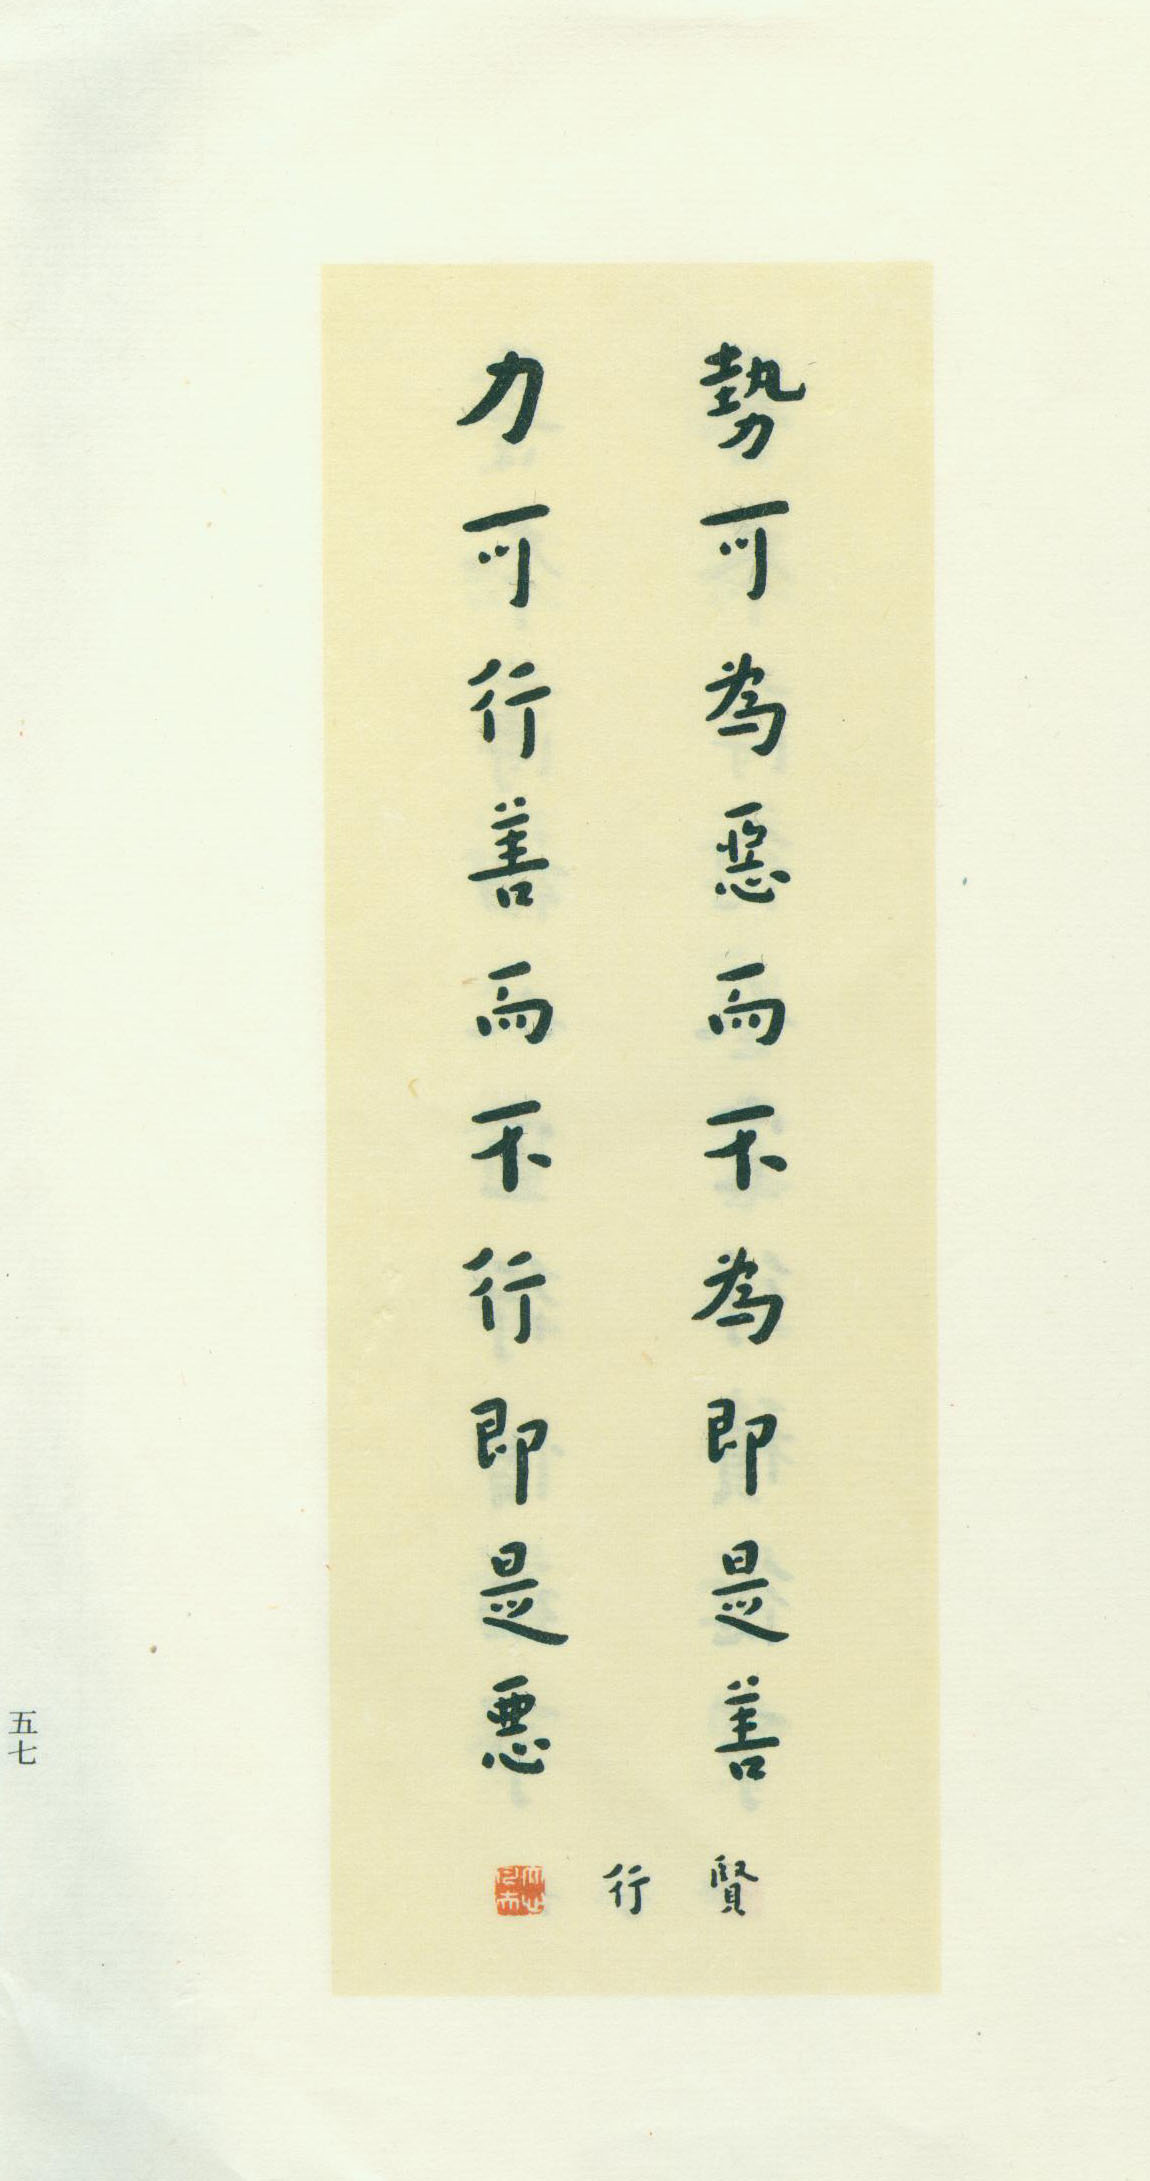 勢可為惡而不為即是善
力可行善而不行即是惡
賢行
五七